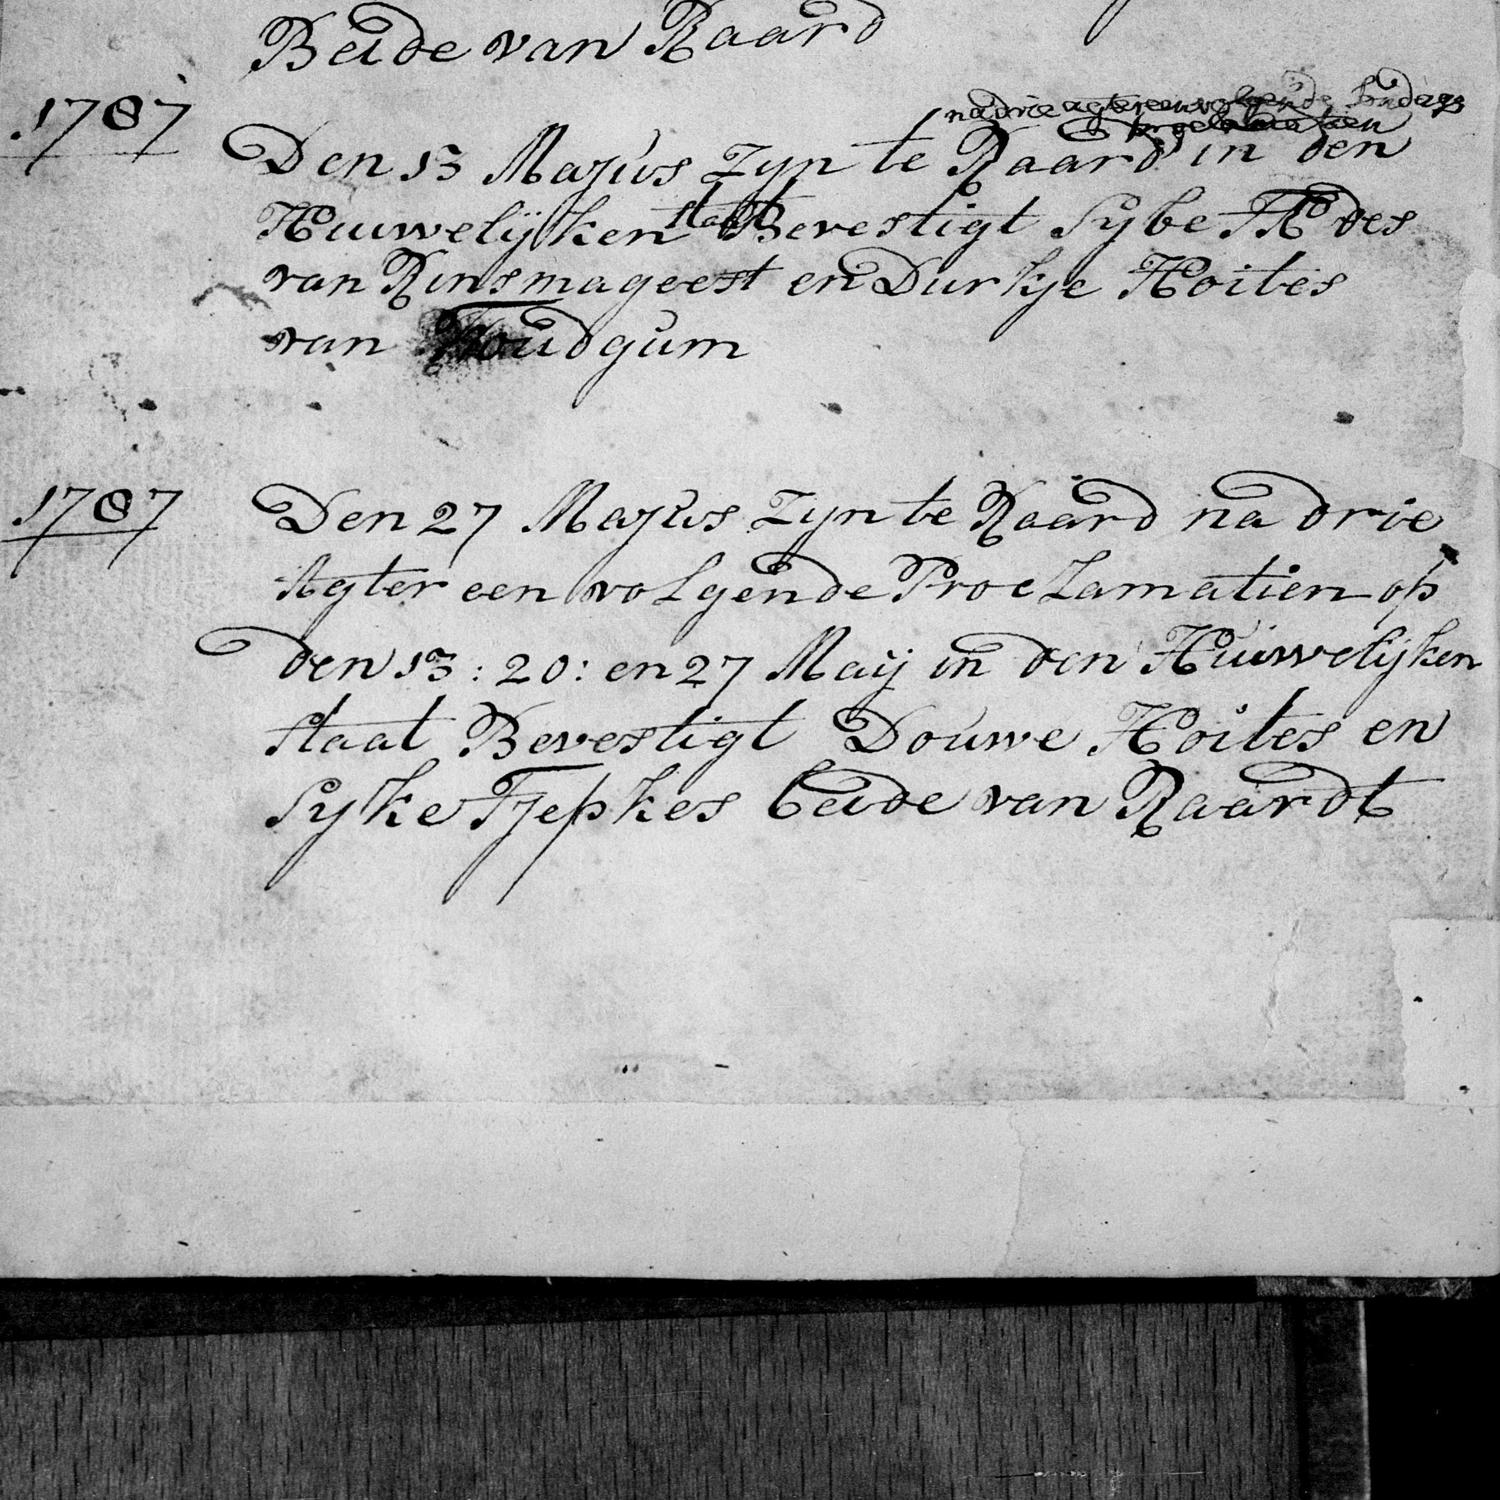 Beide van Raard
1787
na drie agtereenvolgende Sondags
proclamatien
Den 13 Majus Zyn te Raard in den
Huuwelijken staat Bevestigt Sybe
van Rinsmageest en Durkje Hoites
van Foudgum
1787
Den 27 Majus Zyn te Raard na drie
Agter een volgende Proclamatien op
den 13: 20: en 27 Maij in den Huiwelijken
staat Bevestigt Douwe Hoites en
Syke Tjepkes beide van Raardt